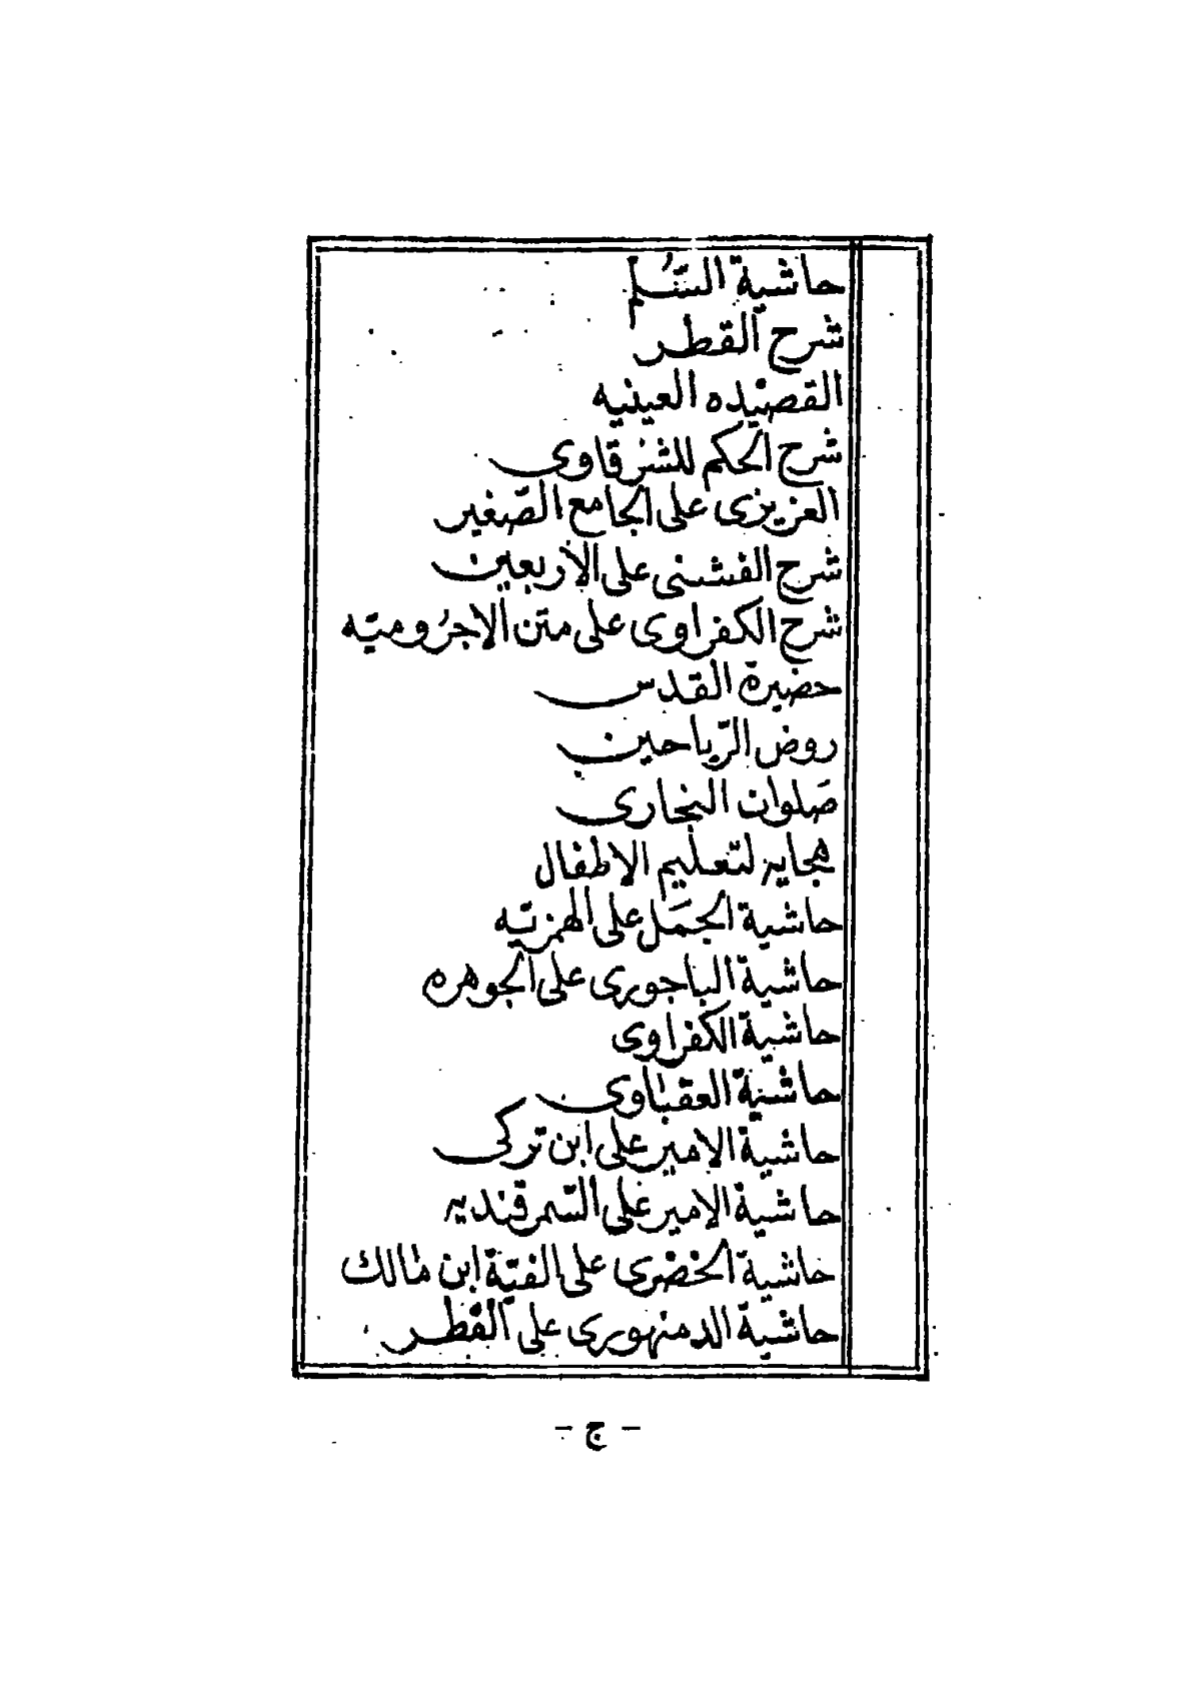 حاشية السُّلم
شرح القطر
القصيده العينيه
شرح الحكم للشرقاوى
العزيزى على الجامع الصّغير
شرح الفشنى على الأربعين
شرح الكفراوى على متن الاجرُوميّه
حضيرة القدس
روض الرّياحين
صَلوات البخارى
هجايه لتعليم الاطفال
حاشية الجمَل على الهمزيّه
حاشية الباجورى على الجوهره
حاشية الكفراوى
حاشية العقباوى
حاشية الامير على ابن تركى
حاشية الامير على السّمرقنديه
حاشية الخضرى على الفيّة ابن مالك
حاشية الدمنهورى على القطر
- ج -